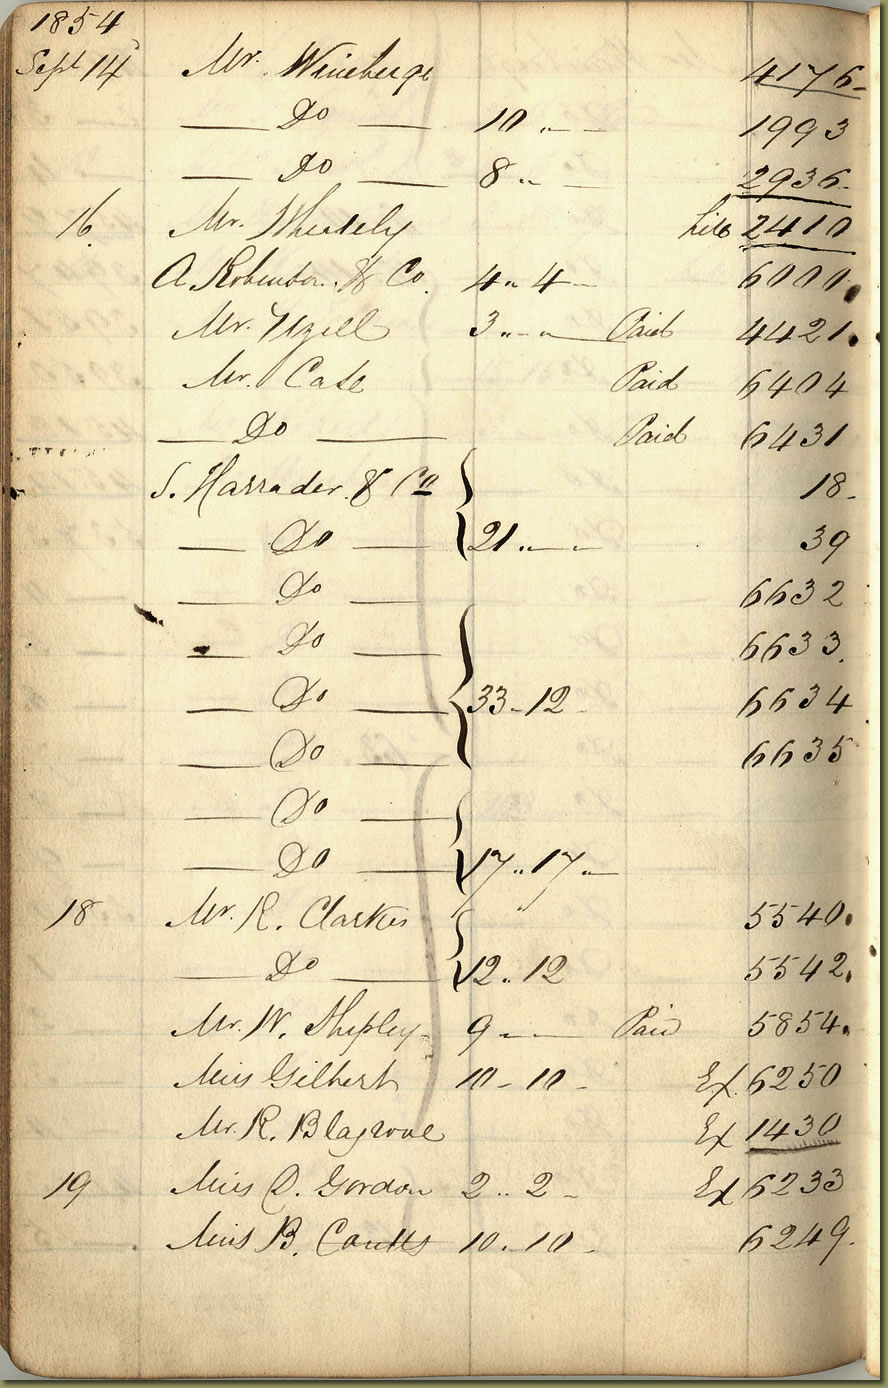 1854
Sept 14 Mr. 4176
Do 10 1993
Do 8 2936
16 Mr. 2410
A. Robinson & Co. 4 .. 4 6000
Mr. Uzell 3 Paid 4421
Mr. Case Paid 6404
Do Paid 6431
S. Harrader & Co 18
Do 21 39
Do 6632
Do 6633
Do 33 - 12 6634
Do 6635
Do
Do 17 .. 17
18 Mr. R. Clarke 5540
Do 12 .. 12 5542
Mr. W. Shipley 9 Paid 5854
Miss Gilbert 10 - 10 Ex 6250
Mr. R. Blagrove Ex 1430
19 Miss D. Gordon 2 .. 2 Ex 6233
Miss B. Coutts 10 .. 10 6249